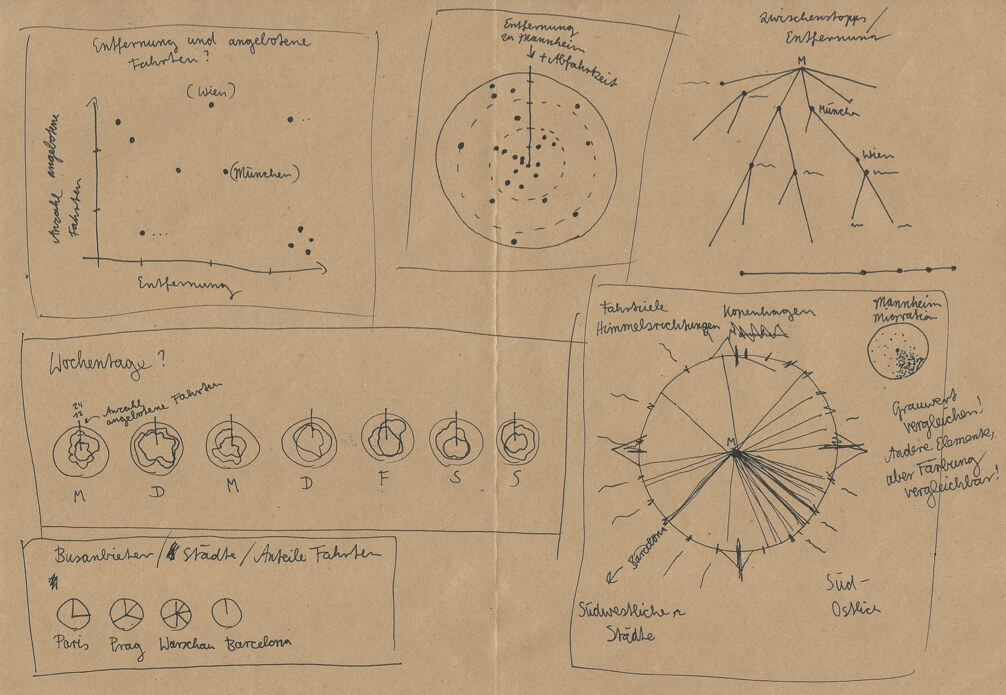 Entfernung und angebotene
Fahrten?
(Wien)
(München)
Anzahl angebotene
Fahrten
Entfernung
Entfernung
zu Mannheim
+ Abfahrtzeit
Zwischenstopps/
Entfernung
M
München
Wien
Wochentage?
24
12
Anzahl
angebotene Fahrten
M D M D F S S
Busanbieter / Städte / Anteile Fahrten
Paris Prag Warschau Barcelona
Fahrtziele
Himmelsrichtungen
Kopenhagen
M
Barcelona
Südwestliche
Städte
Süd-
Östlich
Mannheim
Migration
Grauwert
vergleichen!
Andere Elemente,
aber Färbung
vergleichbar!